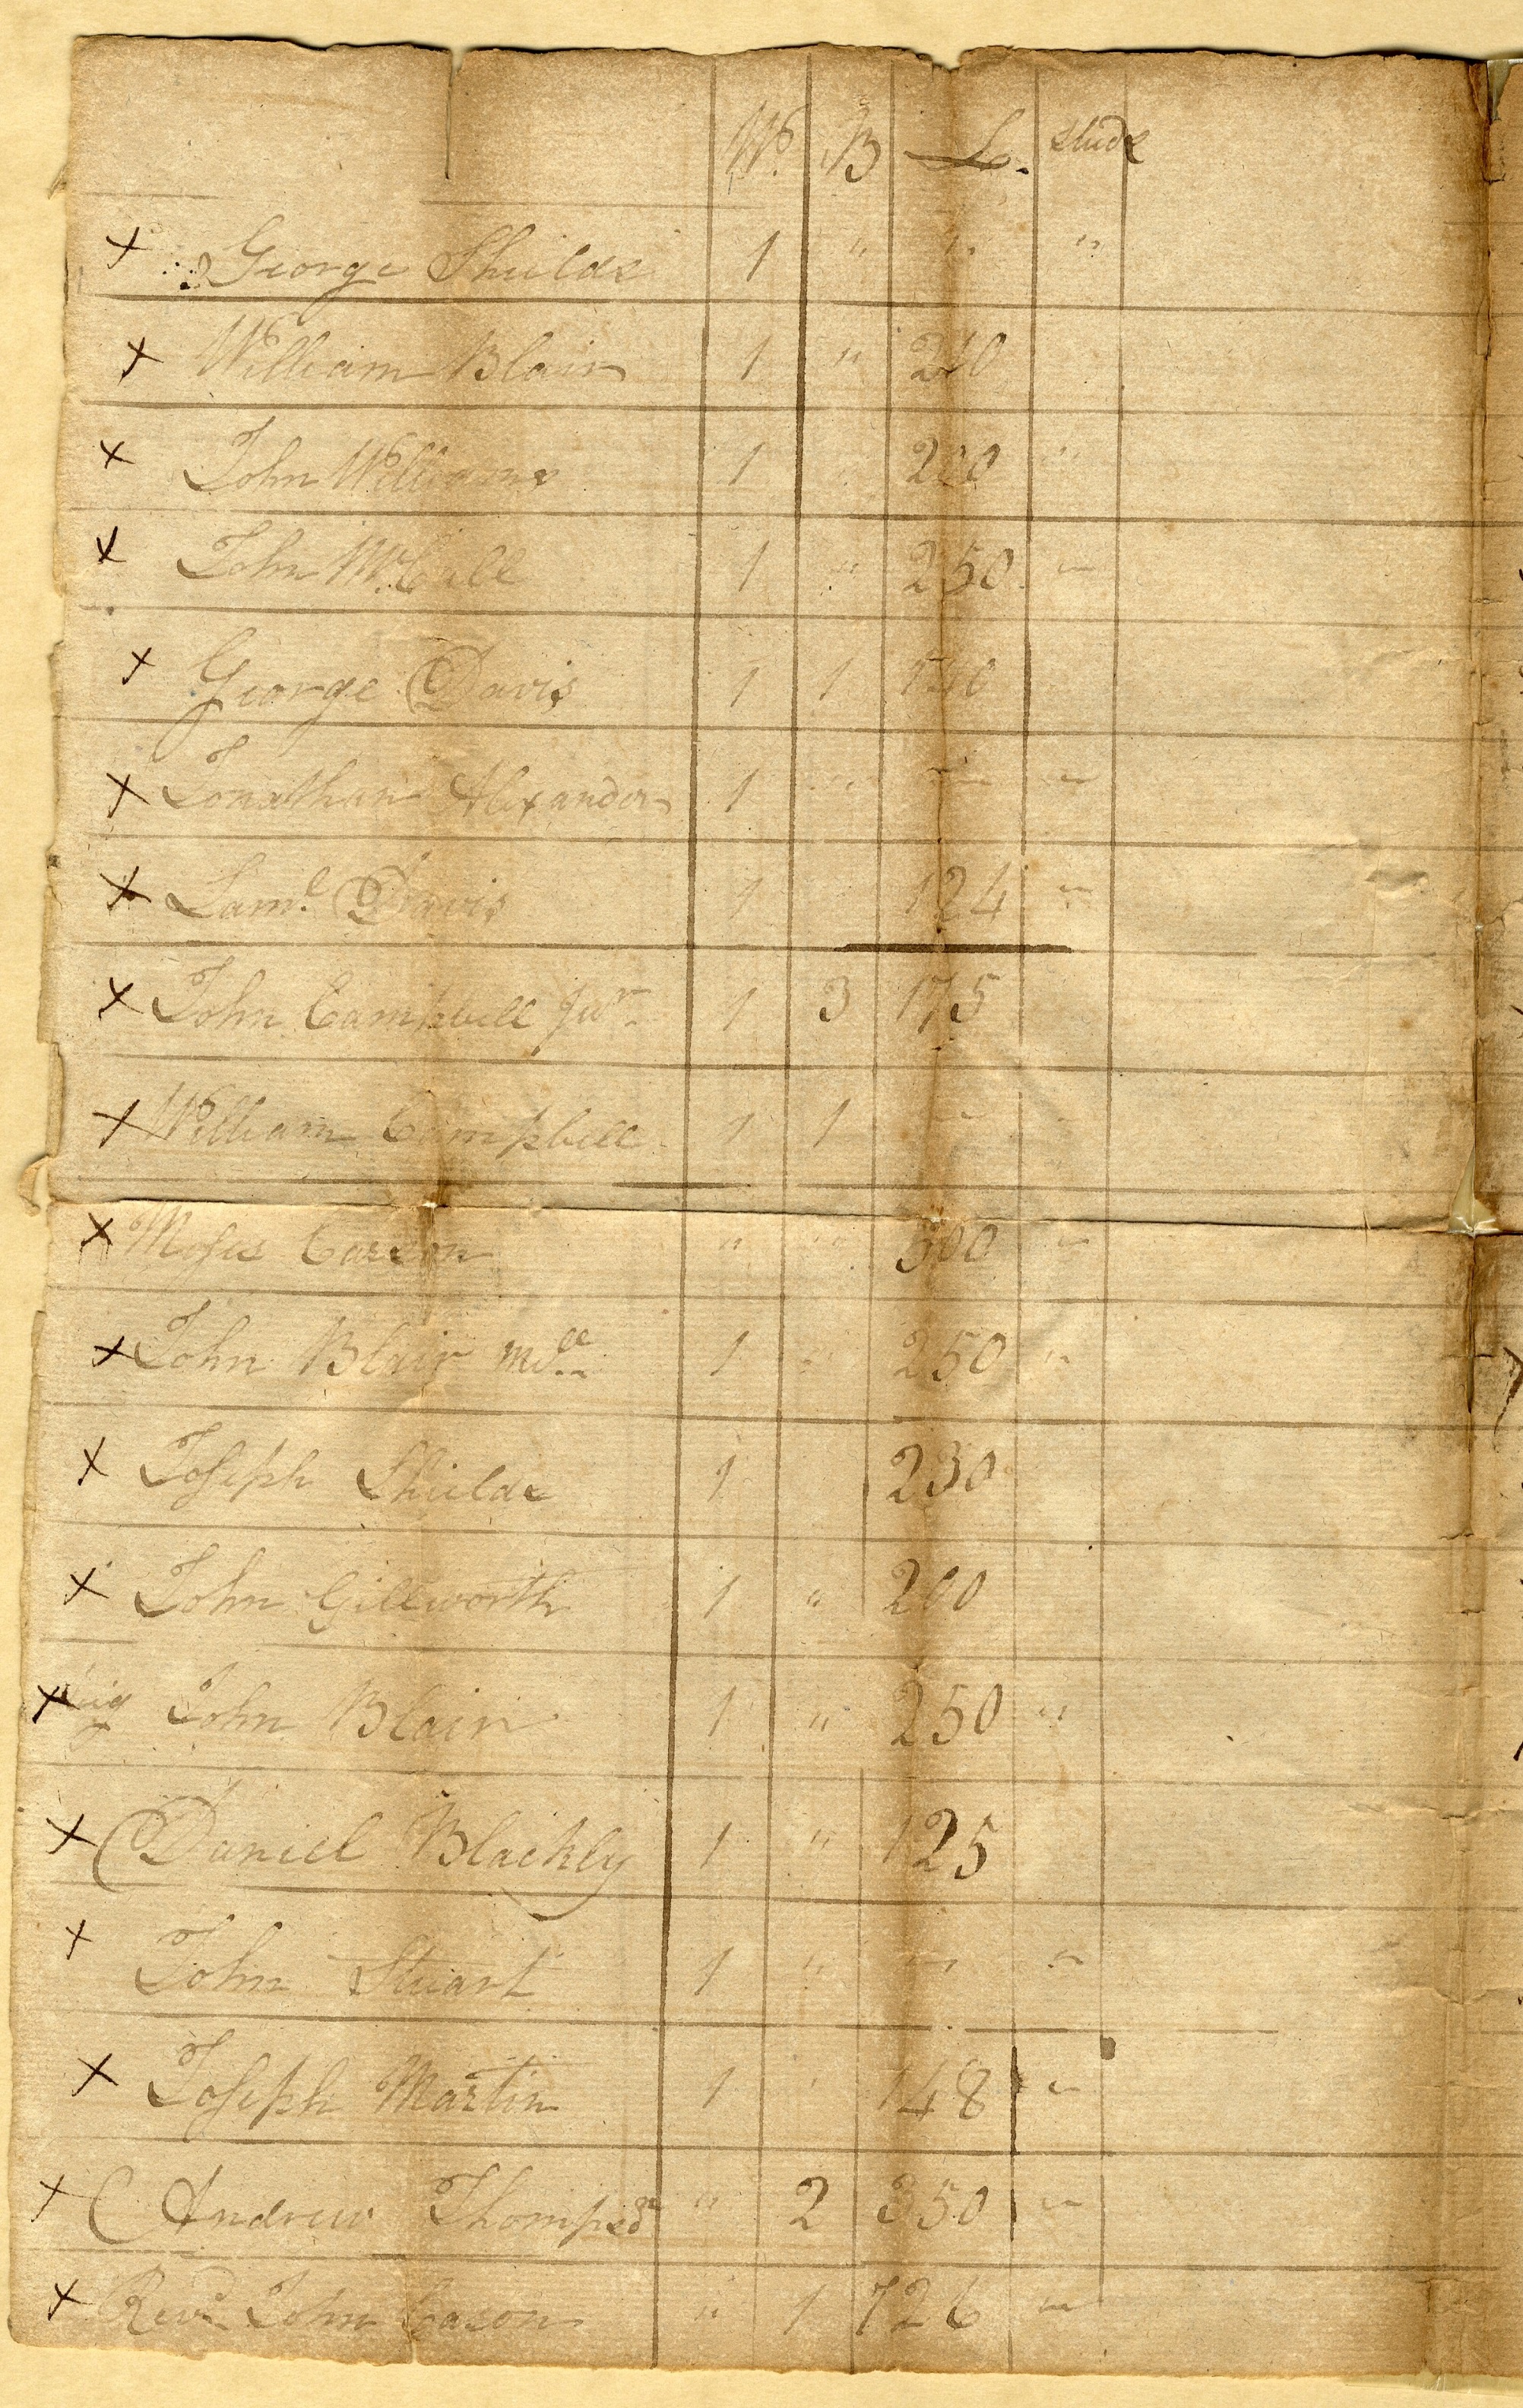 W. B L. Studs
+ George Sheilds 1 " " "
+ William Blair 1 " 240
+ John Williams 1 " 200 "
+ John McCall 1 " 250 "
+ George Davis 1 1 140
+ Jonathan Alexander 1 " " "
+ Saml. Davis 1 124 "
+ John Campbell Jur. 1 3 175
+ William Campbell 1 1 "
+ Moses Carson " " 500 "
+ John Blair 1 " 250 "
+ Joseph Sheilds 1 230
+ John Gillworth 1 " 200
+ John Blair 1 " 250 "
+ Daniel Blackly 1 " 125
+ John Stuart 1 " " "
+ Joseph Martin 1 " 148 "
+ Andrew Thompson " 2 350 "
+ Revd. John Cason " 1 726 "